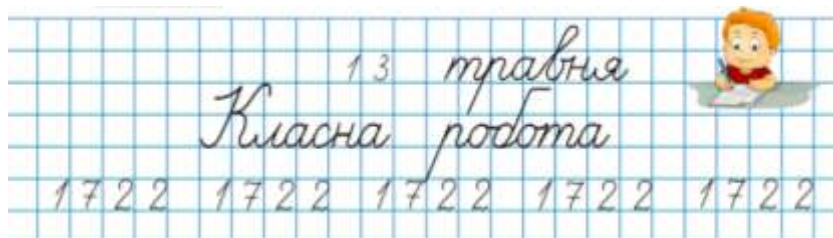 13 травня
Класна робота
1722 1722 1722 1722 1722